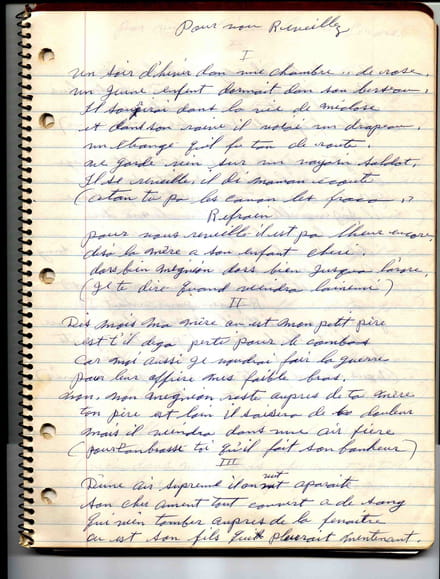 Pour nou Reveillez
I
un soir d'hiver dan une chambre .. de rose.
un jeune enfant dormait dan son berseau.
Il soupirai dans la vie de
et dans son raive il voiai un drapeau.
un Etrange qui fu ton de route.
ne garde rien sur un soldot.
Il se reveille, il di maman ecoute
(atan tu pa les canon les fraca .?
Refrain
pour nous reveillé il est pa l'heur encore.
disa la mère a son enfant cheri.
dors bien mignon dors bien jusqua l'aore.
(Je te dire quand viendra l'ainemi)
II
Dis mois ma mère ou est mon petit père
est t'il dega partie pour le combas
Car moi aussi je voudrai fair la guerre
pour leur affière mes faible bras.
non, non mignon reste aupres de ta mère
ton père est loin il saisira de douleur
mais il viendra dans une air fière
(pour t'ambrassé toi qu'il fait son bonheur)
III
D'une air supreme il on mit aparaite
son cher ament tout couvert a de sang
qui vien tomber aupres de la fenaitre
ou est son fils qui pleurait mentenant.